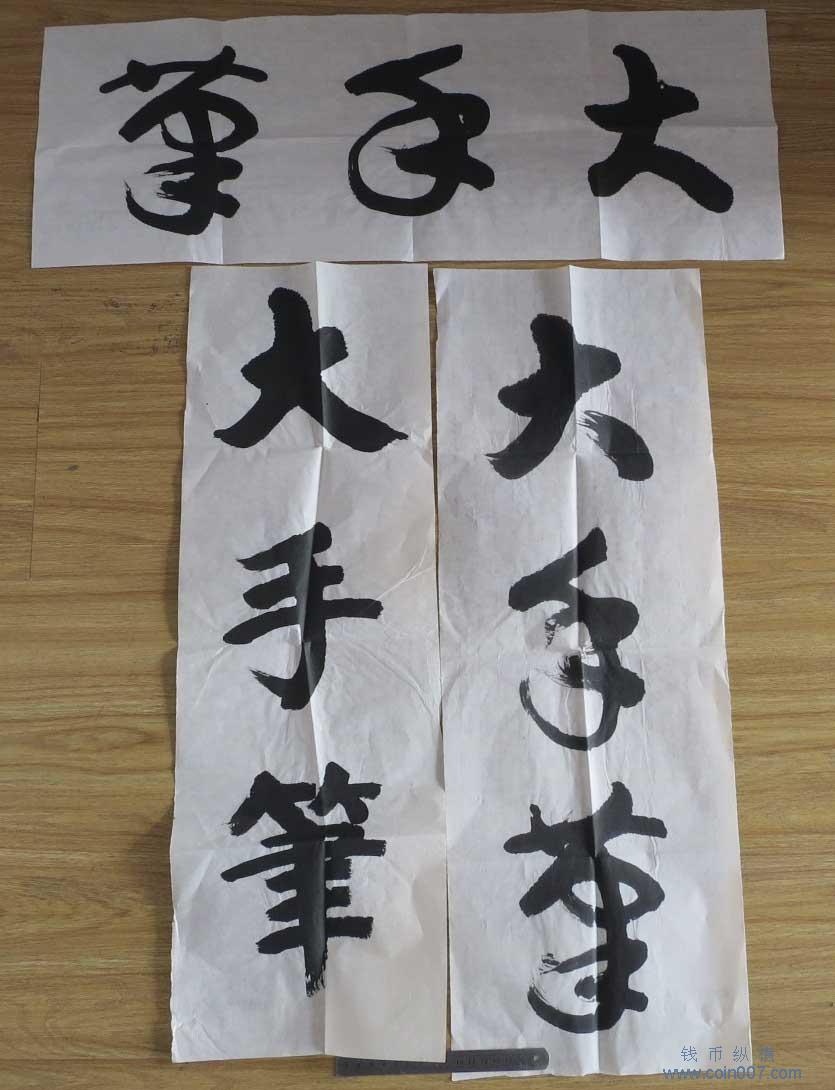 大手筆
大手筆
大手筆
钱币纵横
www.coin007.com